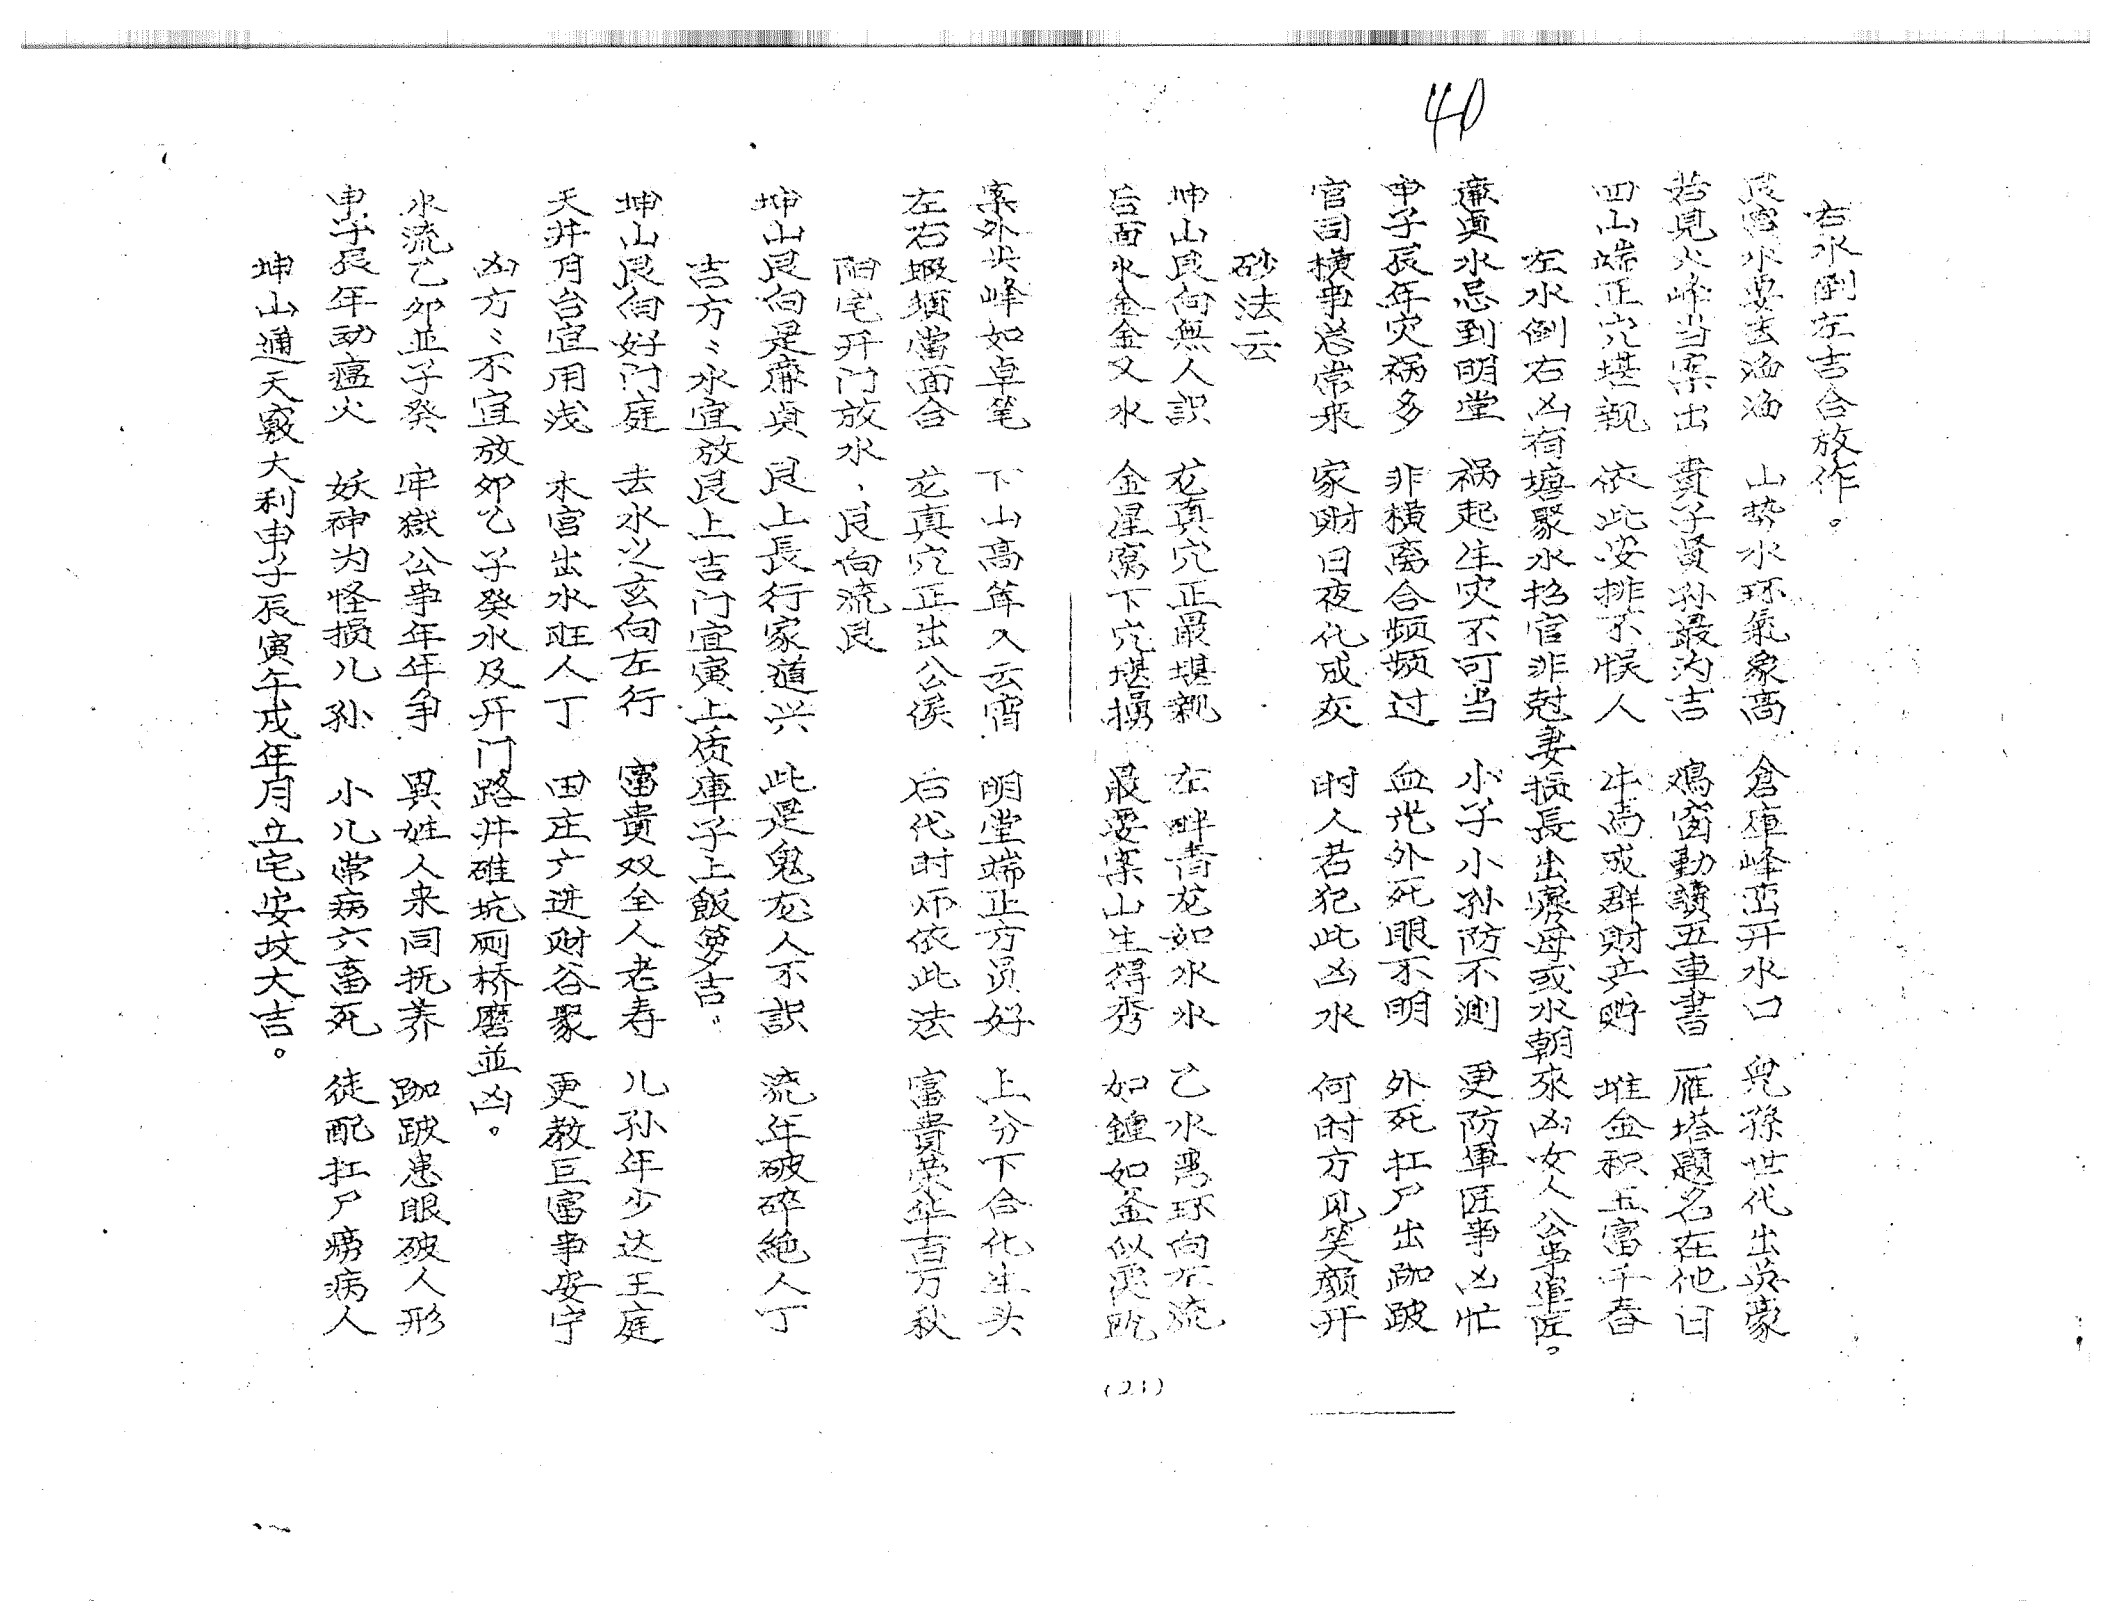 40
右水倒左吉合放作。
艮宮水要去滔滔 山势水环氣象高 倉庫峰峦开水口 兒孫世代出英豪
若見火峰当案出 貴子贤孙最为吉 鳮窗勤讀五車書 雁塔題名在他日
四山端正穴堪親 依此安排不悮人 牛馬成群財产貯 堆金积玉富千春
左水倒右凶有塘聚水招官非尅妻损長出寡母或水朝來凶女人公事 匠。
廉真水忌到明堂 祸起生灾不可当 小子小孙防不測 更防軍匠事凶忙
申子辰年灾祸多 非橫离合频频过 血光外死眼不明 外死扛尸出跏跛
官司横事常來 家财日夜化成灰 时人若犯此凶水 何时方见笑颜开
砂法云
坤山艮向無人識 龙真穴正最堪親 左畔青龙如水水 乙水弯环向左流
后面水金金又水 金星窩下穴堪 最要案山生得秀 如鐘如釜似覆
案外尖峰如卓笔 下山高耸入云霄 明堂端正方员好 上分下合化生头
左右 須當面合 龙真穴正出公侯 后代时师依此法 富貴荣华百万秋
阳宅开门放水、艮向流艮
坤山艮向是廉貞 艮上長行家道兴 此是鬼龙人不識 流年破碎絶人丁
吉方〻水宜放艮上吉门宜寅上质庫子上飯蒡吉。
坤山艮向好门庭 去水之玄向左行 富貴双全人老寿 儿孙年少达王庭
天井月台宜用浅 木宮出水旺人丁 田庄广进财谷聚 更教巨富事安宁
凶方〻不宜放卯乙子癸水及开门路井碓坑厕桥磨並凶。
水流乙卯並子癸 牢獄公事年年争 異姓人来同抚养 跏跛患眼破人形
申子辰年动瘟火 妖神为怪损儿孙 小儿常病六畜死 徒配扛尸痨病人
坤山通天竅大利申子辰寅午戌年月立宅安坟大吉。
(21)